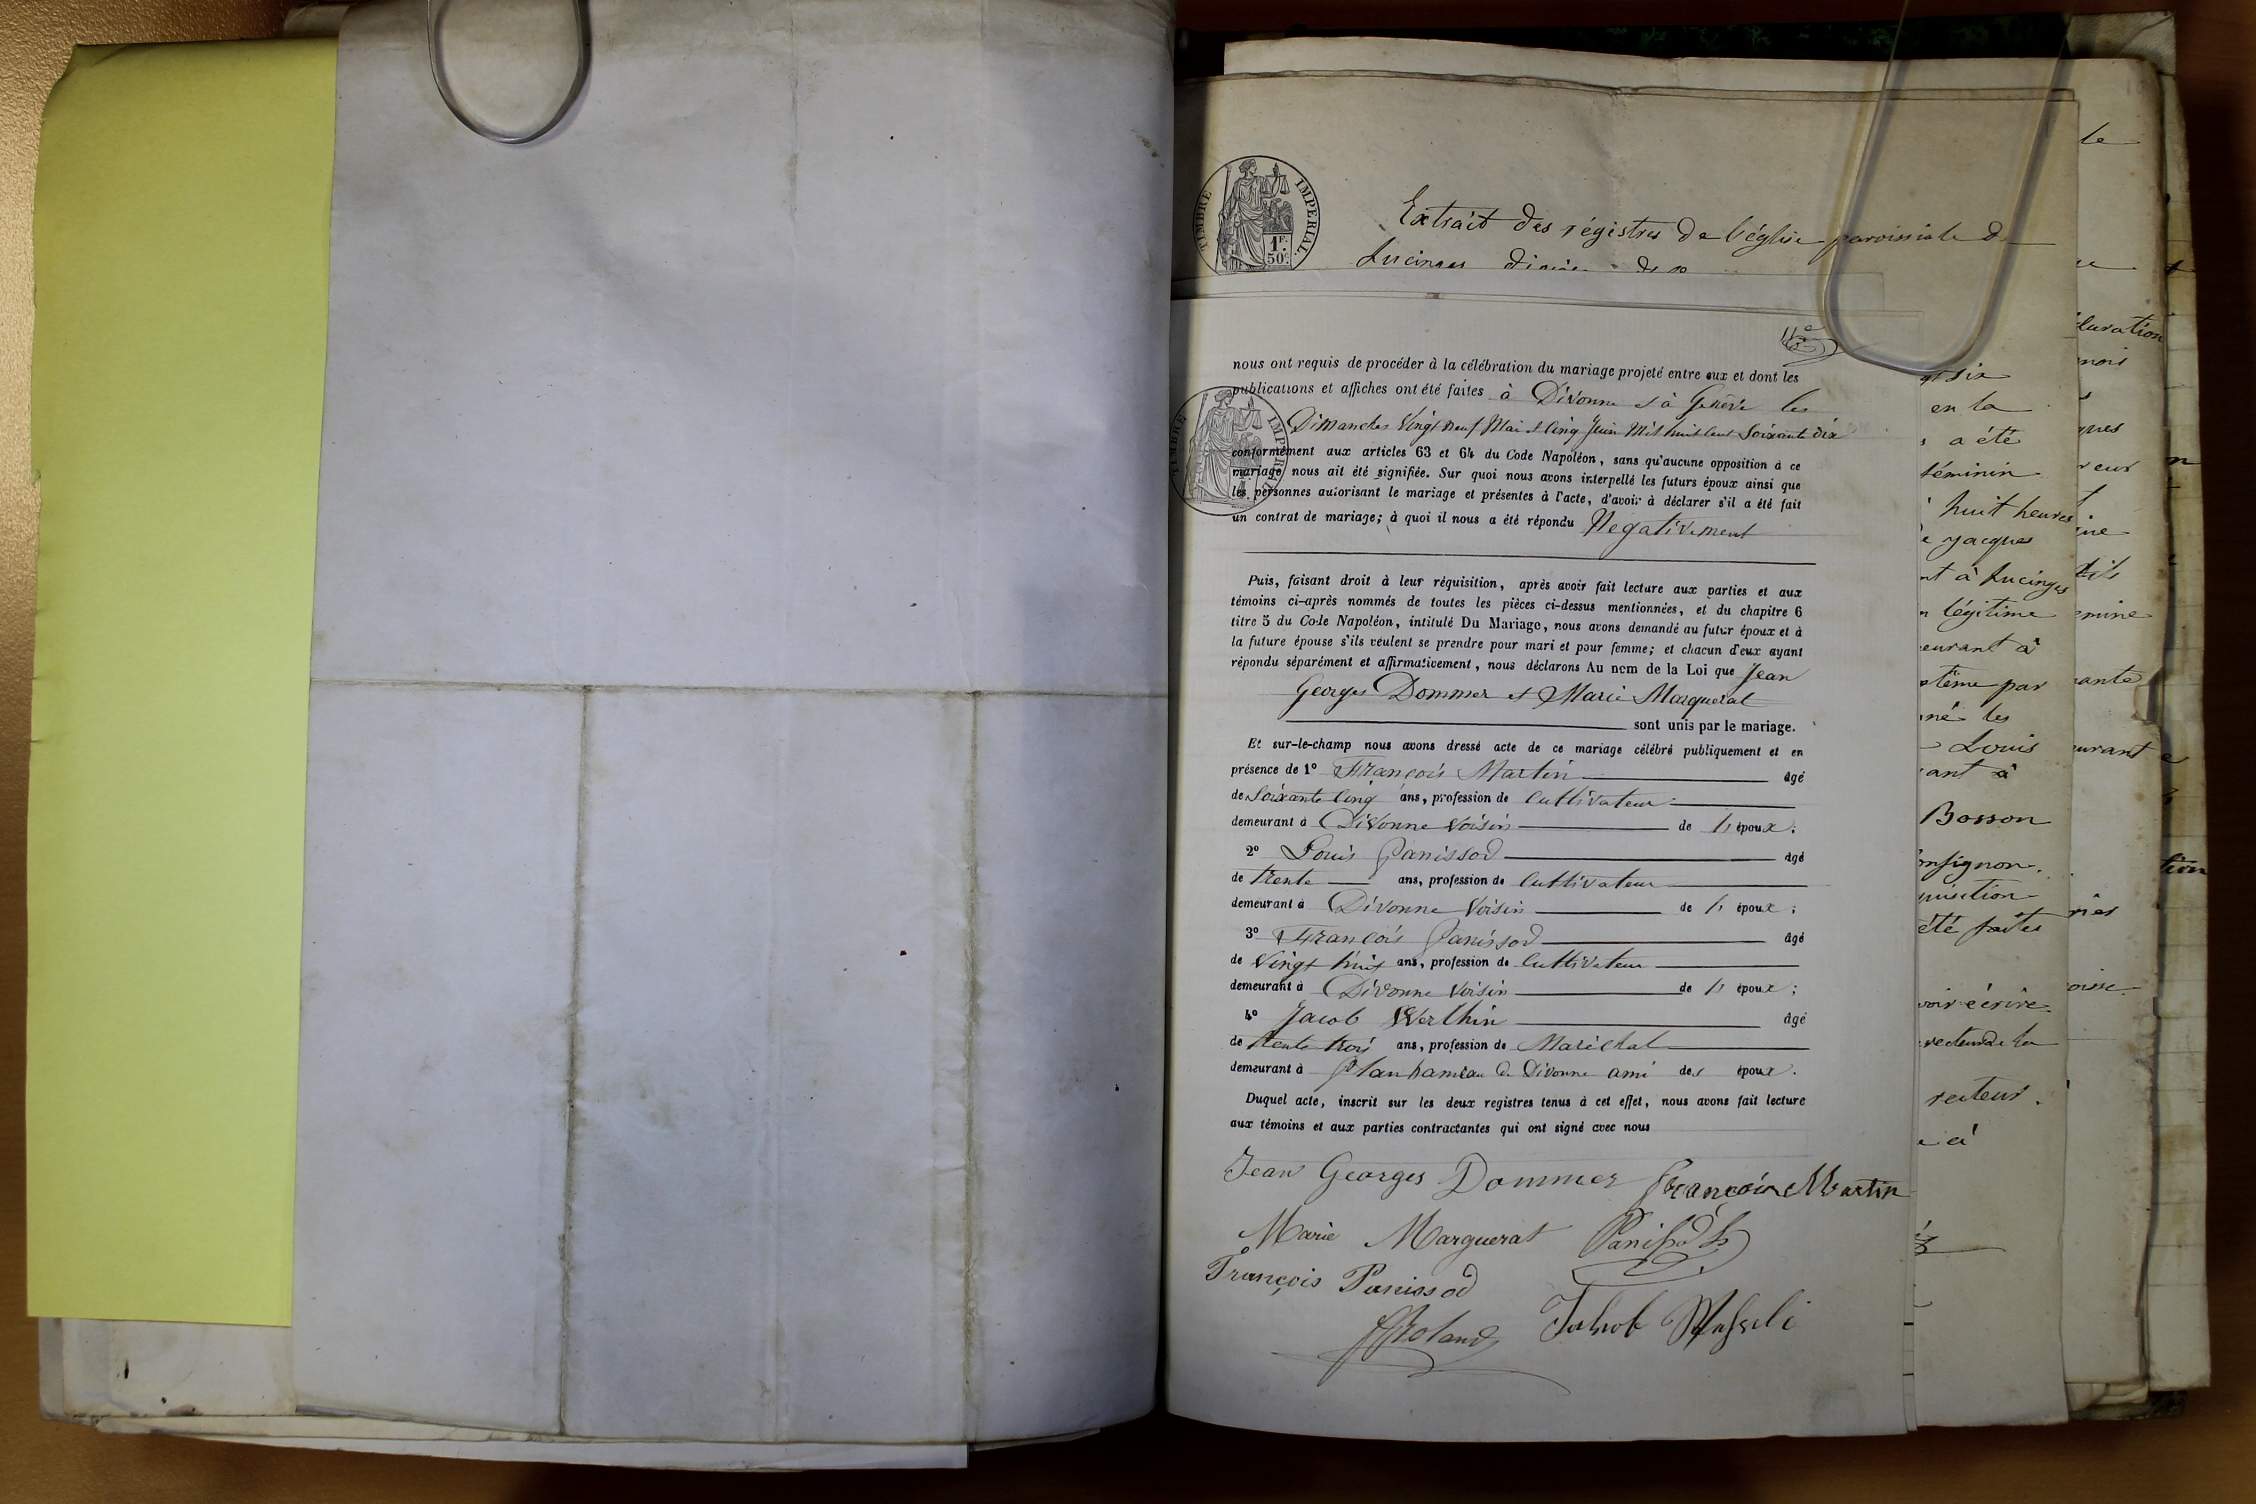 TIMBRE IMPERIAL.
1F.
50c.
Extrait des régistres de l'église paroissiale de
Lucinges
nous ont requis de procéder à la célébration du mariage projeté entre eux et dont les
publications et affiches ont été faites à Divonne et à Genève les
Dimanches Vingt neuf Mai et cinq Juin Mil huit cent Soixante dix
conformément aux articles 63 et 64 du Code Napoléon, sans qu'aucune opposition à ce
mariage nous ait été signifiée. Sur quoi nous avons interpellé les futurs époux ainsi que
les personnes autorisant le mariage et présentes à l'acte, d'avoir à déclarer s'il a été fait
un contrat de mariage; à quoi il nous a été répondu Négativement
Puis, faisant droit à leur réquisition, après avoir fait lecture aux parties et aux
témoins ci-après nommés de toutes les pièces ci-dessus mentionnées, et du chapitre 6
titre 5 du Code Napoléon, intitulé Du Mariage, nous avons demandé au futur époux et à
la future épouse s'ils veulent se prendre pour mari et pour femme; et chacun d'eux ayant
répondu séparément et affirmativement, nous déclarons Au nom de la Loi que Jean
Georges Dommer et Marie Marguerat
sont unis par le mariage.
Et sur-le-champ nous avons dressé acte de ce mariage célébré publiquement et en
présence de 1° François Martin âgé
de Soixante cinq ans, profession de Cultivateur
demeurant à Divonne voisin de époux;
2° Louis Panissod âgé
de trente ans, profession de Cultivateur
demeurant à Divonne voisin de époux;
3° François Panissod âgé
de vingt huit ans, profession de Cultivateur
demeurant à Divonne voisin de époux;
4° Jacob âgé
de trente trois ans, profession de Maréchal
demeurant à Plan hameau de Divonne ami des époux.
Duquel acte, inscrit sur les deux registres tenus à cet effet, nous avons fait lecture
aux témoins et aux parties contractantes qui ont signé avec nous
Jean Georges Dommer François Martin
Marie Marguerat Panissod
François Panissod
Roland Jakob
six
en la
a été
féminin
huit heures
jacques
à Lucinges
légitime
à
par
les
Louis
à
Bosson
été faites
écrire
de la
recteur.